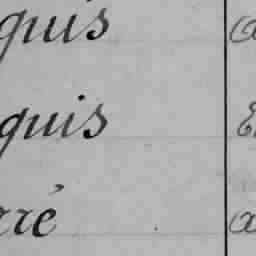 quis
quis
rré